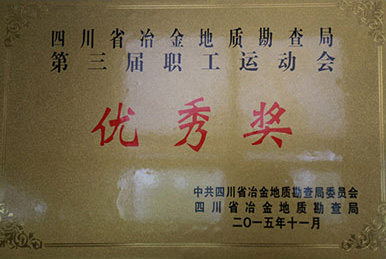 四川省冶金地质勘查局
第三届职工运动会
优秀奖
中共四川省冶金地质勘查局委员会
四川省冶金地质勘查局
二〇一五年十一月